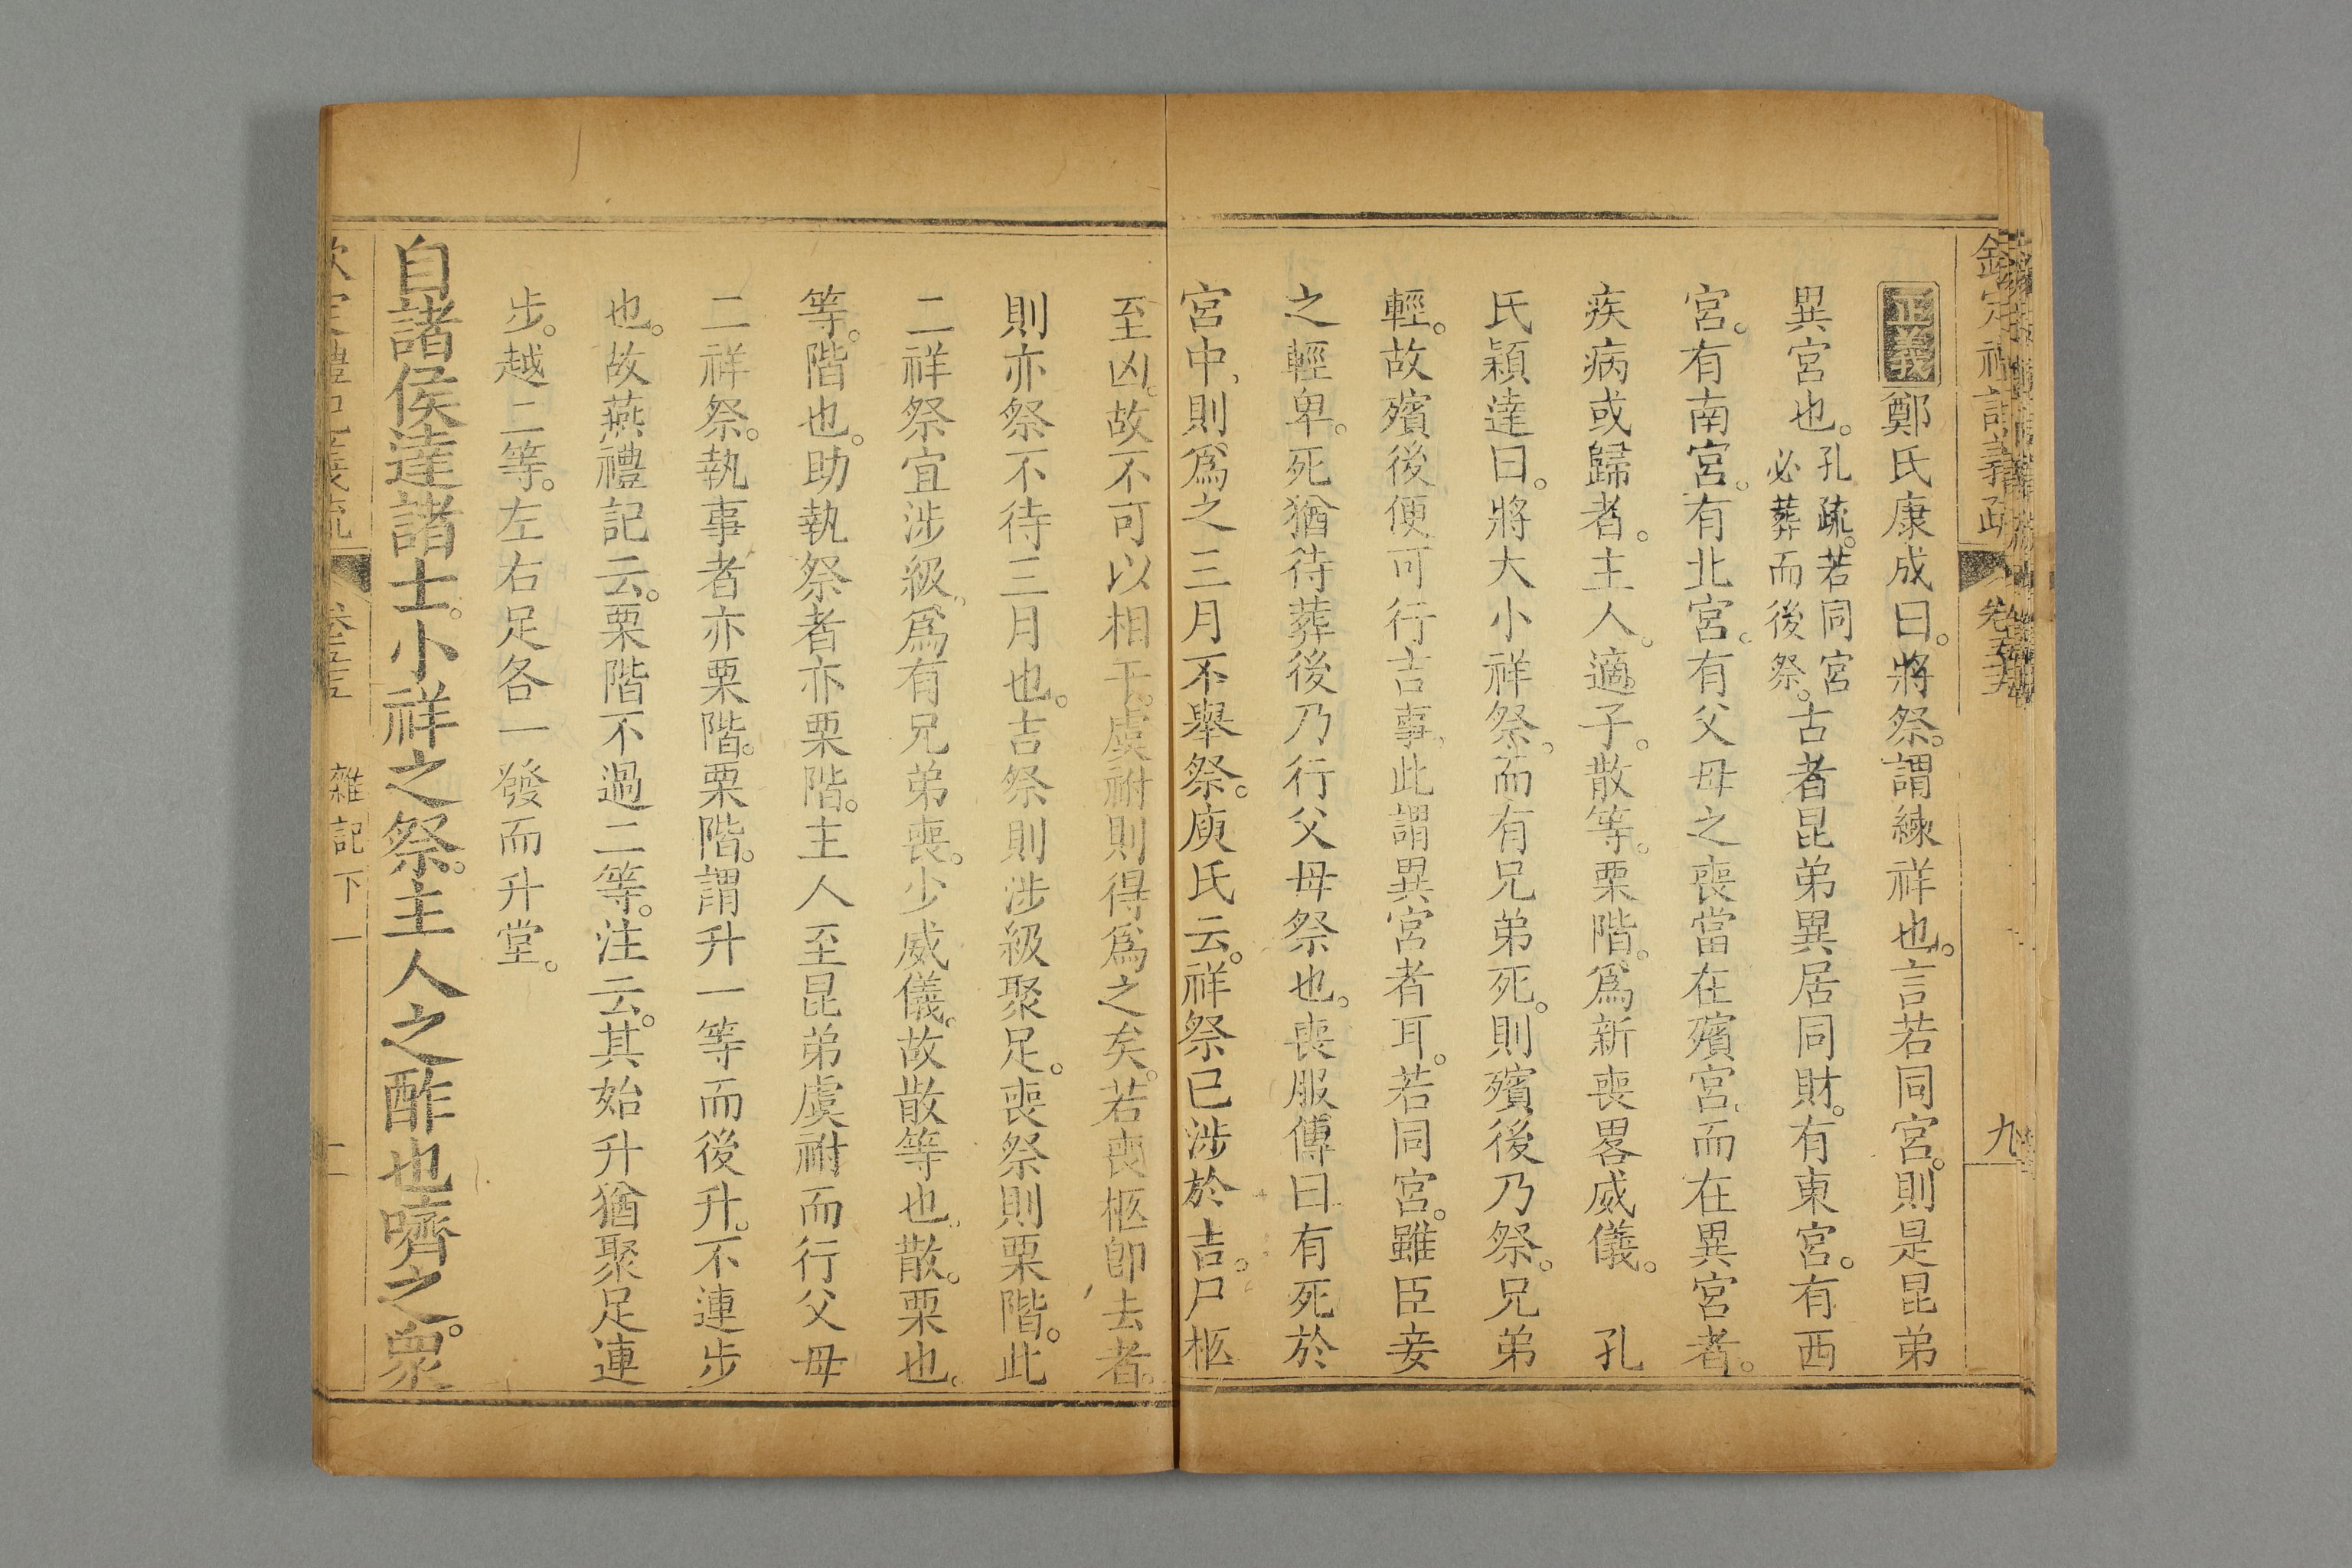 正義鄭氏康成曰。將祭。謂練祥也。言若同宮。則是昆弟
異宮也。孔疏。若同宮必葬而後祭。古者昆弟異居同財。有東宮。有西
宮。有南宮。有北宮。有父母之喪當在殯宮、而在異宮者。
疾病或歸者。主人。適子。散等。栗階。爲新喪畧威儀。 孔
氏穎達曰。將大小祥祭。而有兄弟死。則殯後乃祭。兄弟
輕。故殯後便可行吉事、此謂異宮者耳。若同宮。雖臣妾
之輕卑。死猶待葬後乃行父母祭也。喪服傳曰有死於
宮中、則爲之三月不舉祭。庾氏云。祥祭已涉於吉。尸柩
至凶。故不可以相干。虞祔則得爲之矣。若喪柩卽去者。
則亦祭不待三月也。吉祭則涉級聚足。喪祭則栗階。此
二祥祭宜涉級、爲有兄弟喪。少威儀。故散等也、散。栗也。
等。階也。助執祭者亦栗階。主人至昆弟虞祔而行父母
二祥祭。執事者亦栗階。栗階。謂升一等而後升。不連步
也。故燕禮記云。栗階不過二等。注云。其始升猶聚足連
步。越二等。左右足各一發而升堂。
自諸侯達諸士。小祥之祭。主人之酢也嚌之。眾
雜記下一
九